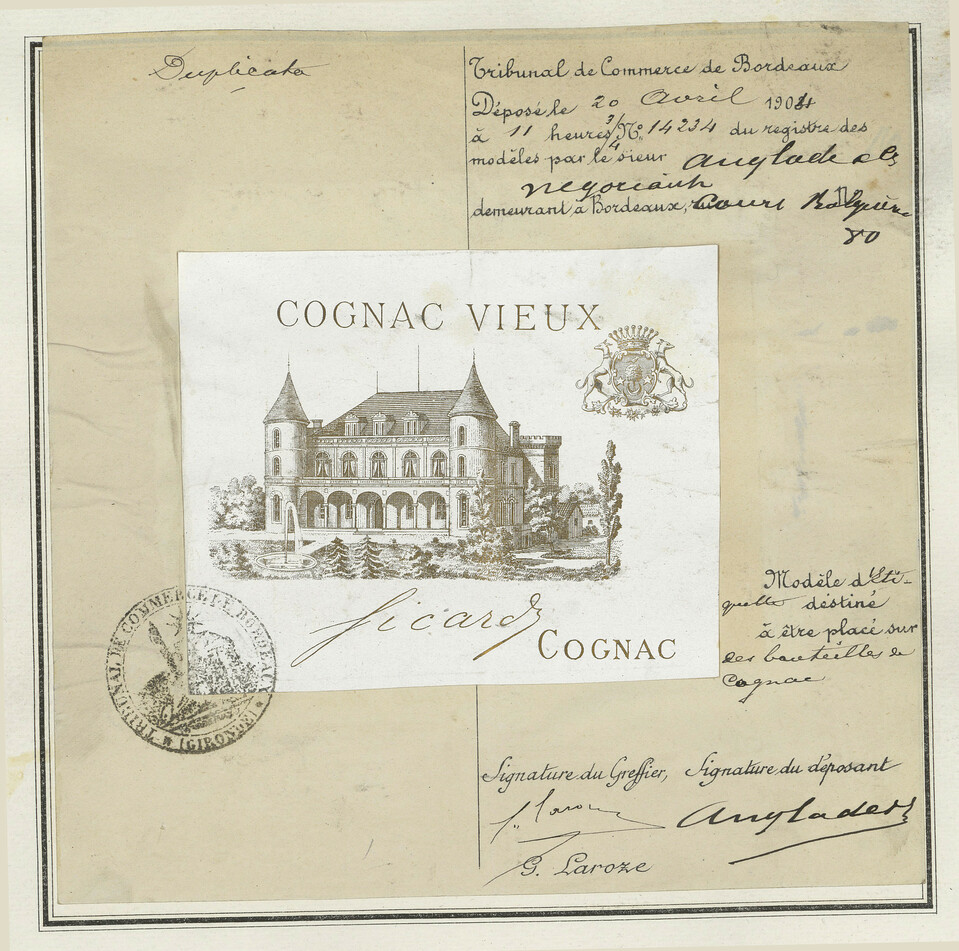 Duplicata
Tribunal de Commerce de Bordeaux
Déposé le 20 Avril 1904
à 11 heures 3/4 No. 14234 du registre des
modèles par le sieur Anglade
négociant
demeurant à Bordeaux, cours
80
COGNAC VIEUX
Sicard
COGNAC
Modèle d'Eti-
quette destiné
à être placé sur
des bouteilles de
Cognac
TRIBUNAL DE COMMERCE DE BORDEAUX
(GIRONDE)
Signature du Greffier, Signature du déposant
G. Laroze